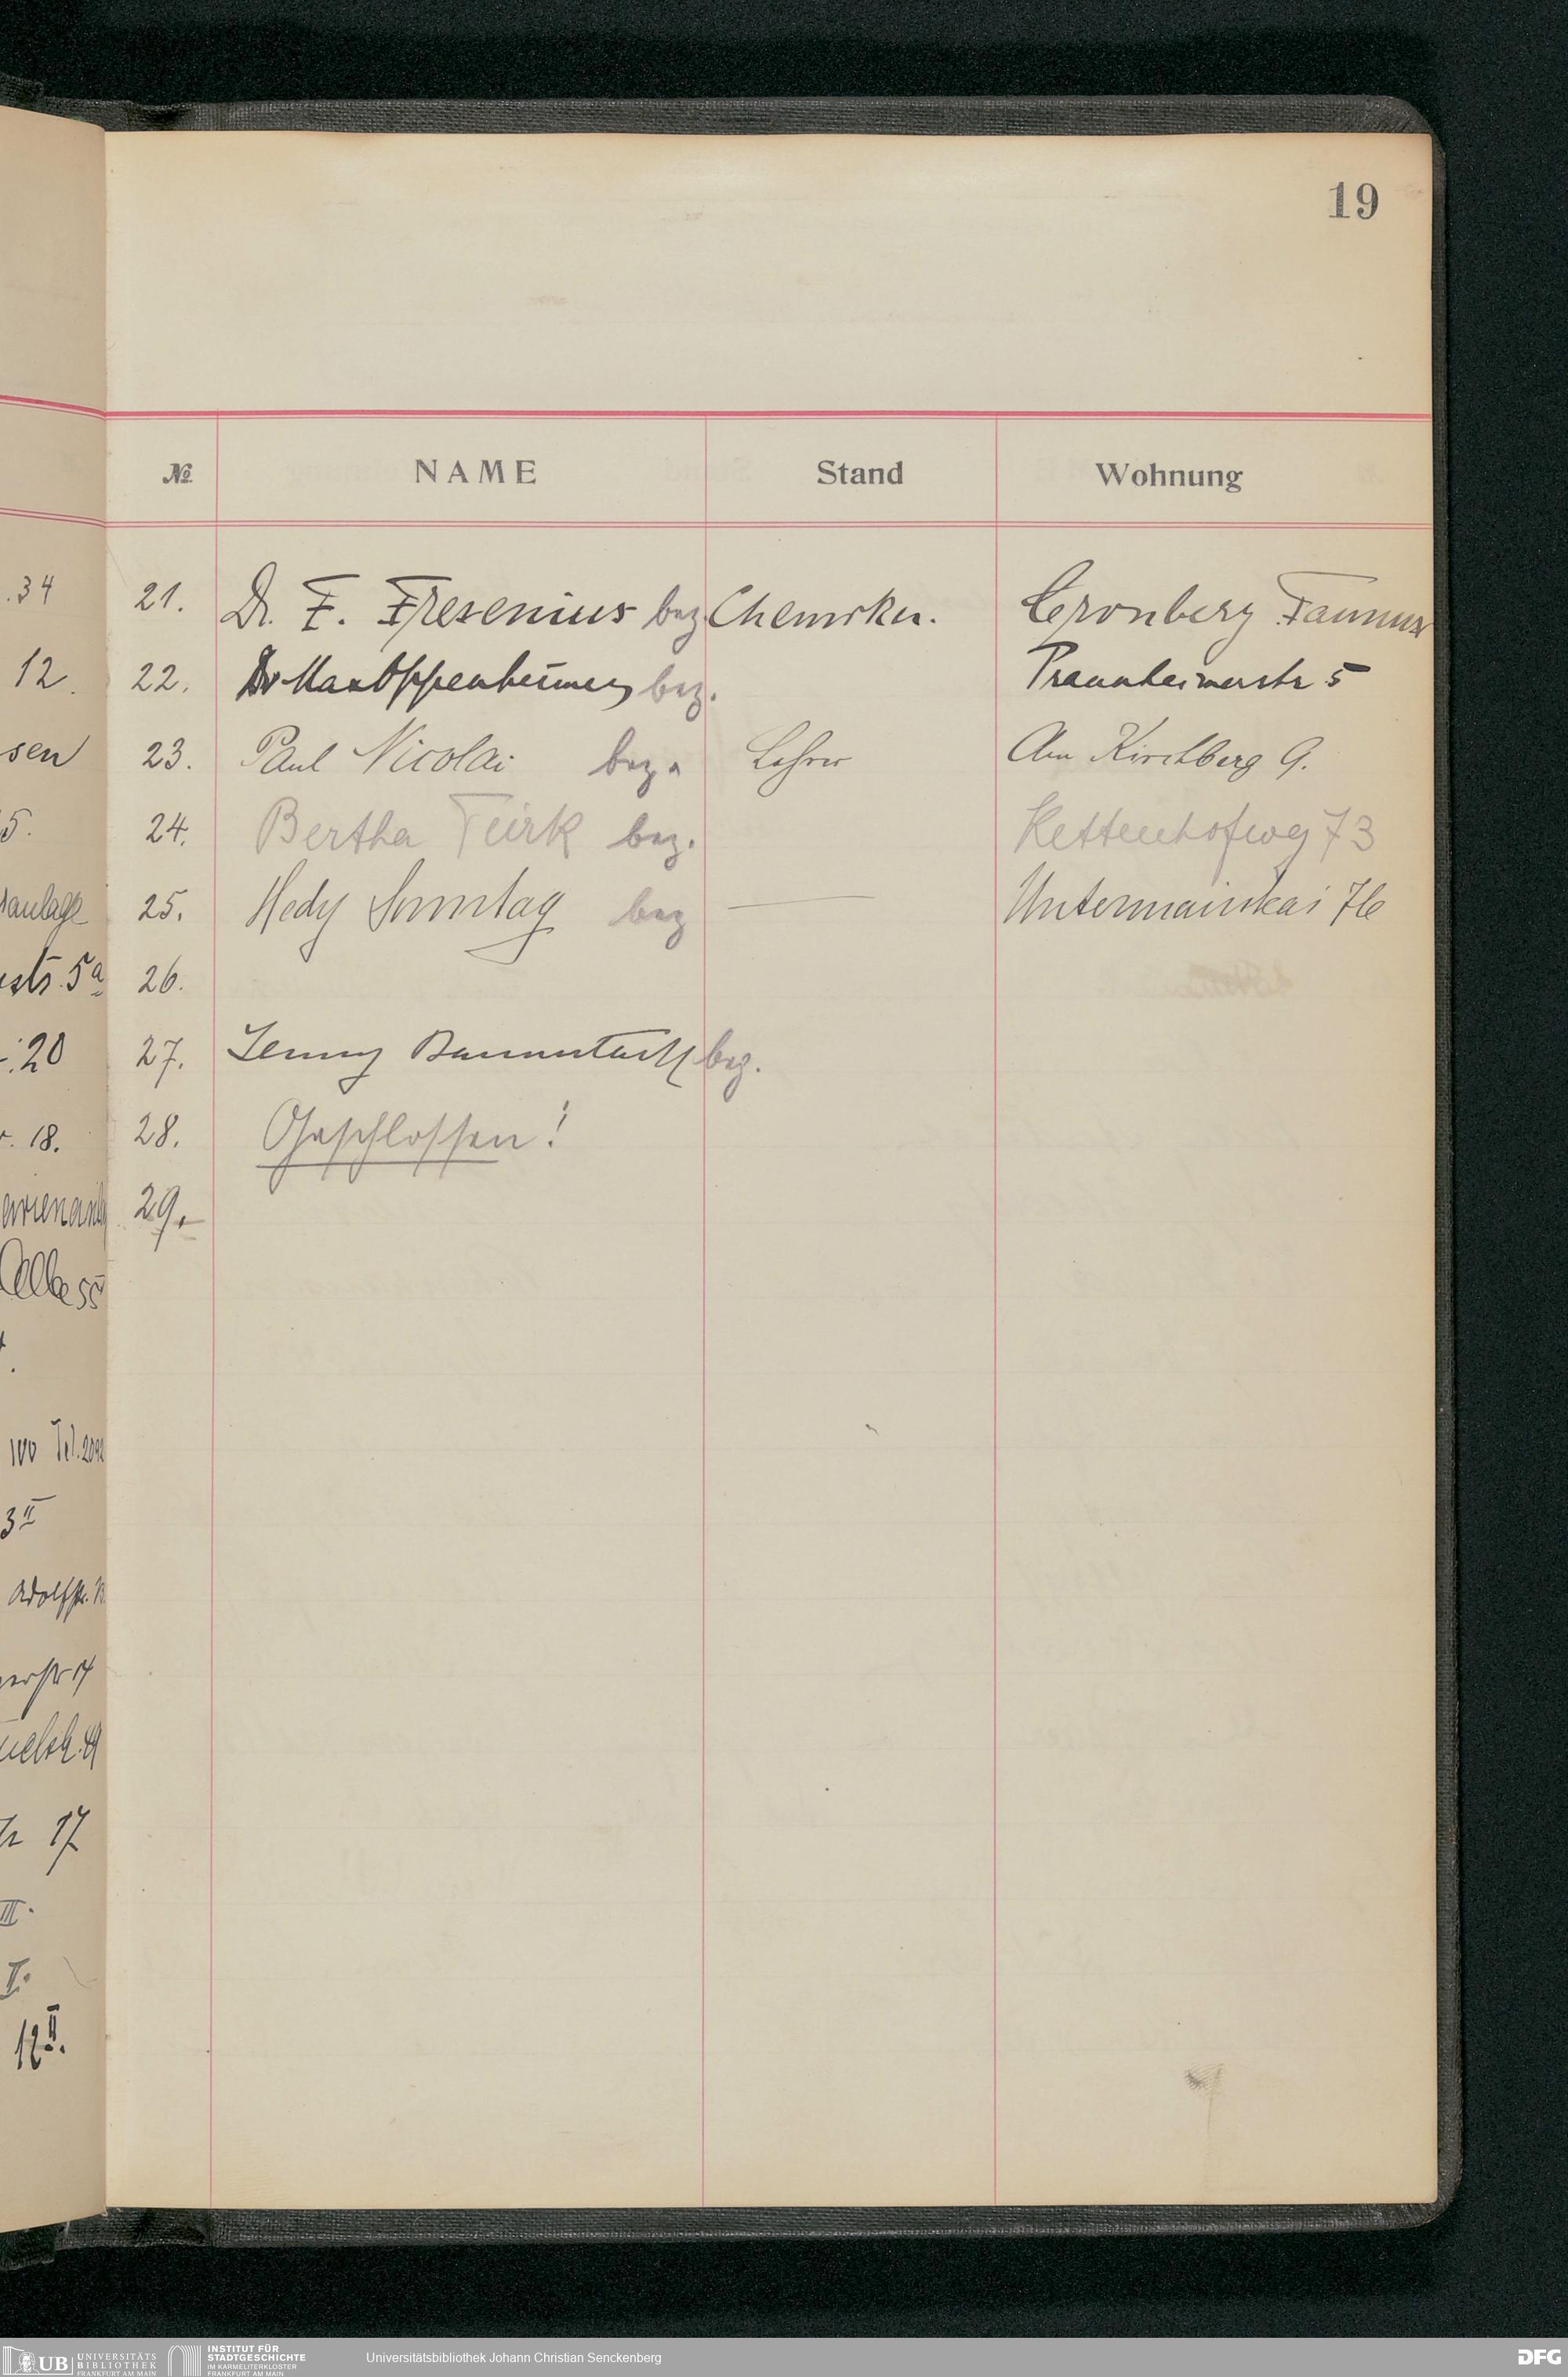 19
№ NAME Stand Wohnung
.34
21. Dr. F. Fresenius bez. Chemiker. Cronberg Taunus
12.
22. Dr Max Oppenheimer bez. Praunheimerstr 5
sen
23. Paul Nicolai bez. Lehrer Am Kirchberg 9.
5.
24. Bertha Türk bez. Kettenhofweg 73
anlage
25. Hedy Sonntag bez — Untermainkai 76
str. 5a
26.
20
27. Jenny bez.
18.
28. Geschlossen!
29.
100 Tel.
3 II
Adolfstr.
17
III.
II.
UB UNIVERSITÄTS BIBLIOTHEK FRANKFURT AM MAIN
INSTITUT FÜR STADTGESCHICHTE IM KARMELITERKLOSTER FRANKFURT AM MAIN
Universitätsbibliothek Johann Christian Senckenberg
DFG